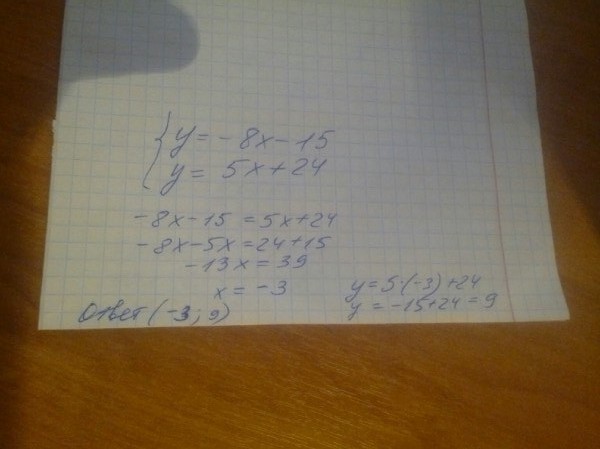 y = -8x-15
y = 5x+24
-8x-15 = 5x+24
-8x-5x = 24+15
-13x = 39
x = -3
y = 5·(-3)+24
y = -15+24 = 9
Ответ (-3; 9)